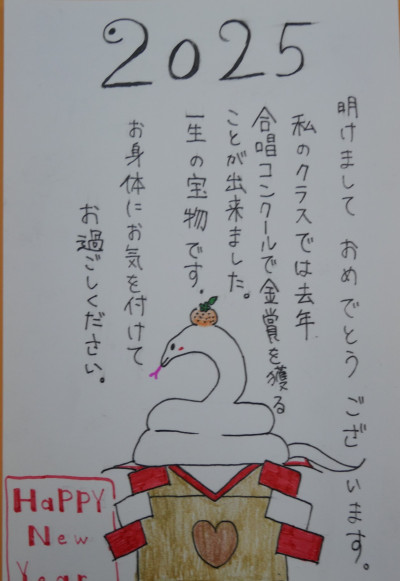 2025
明けまして おめでとう ございます。
私のクラスでは去年
合唱コンクールで金賞を獲る
ことが出来ました。
一生の宝物です。
お身体にお気を付けて
お過ごしください。
HaPPY
New
Year